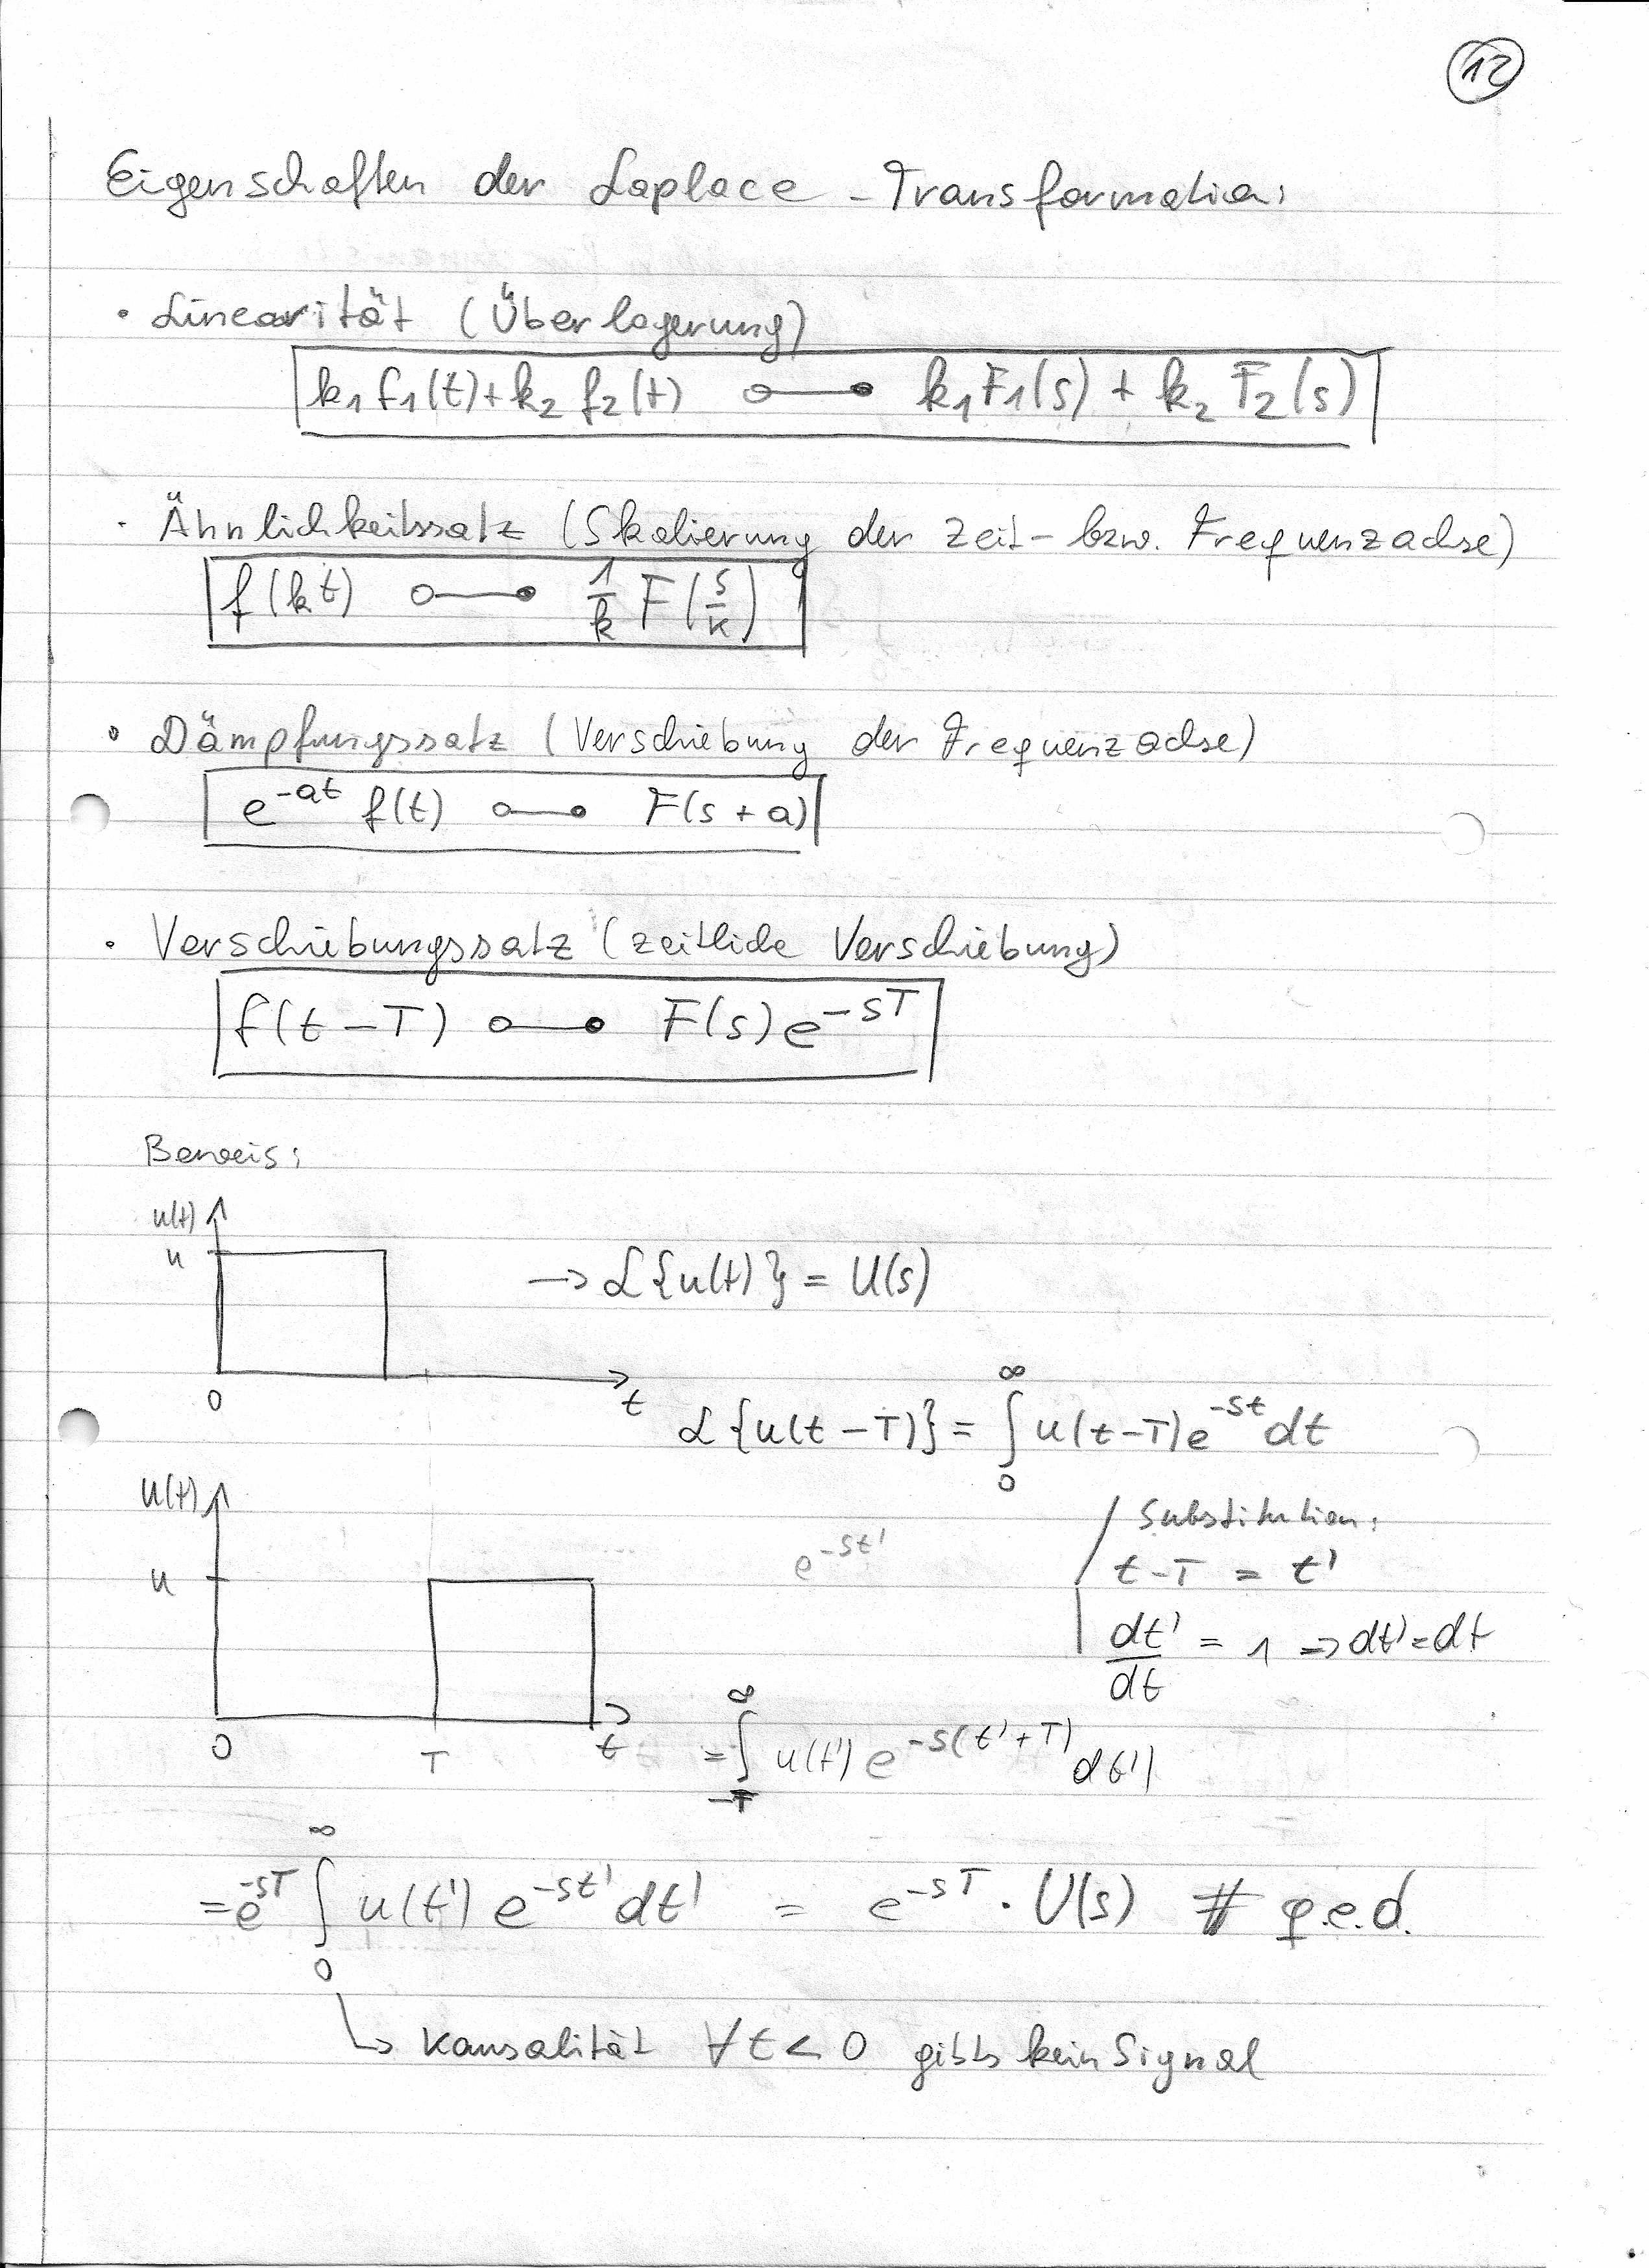 12
Eigenschaften der Laplace-Transformation:
• Linearität (Überlagerung)
k₁ f₁(t) + k₂ f₂(t) ○—● k₁ F₁(s) + k₂ F₂(s)
• Ähnlichkeitssatz (Skalierung der Zeit- bzw. Frequenzachse)
f(kt) ○—● 1/k F(s/k)
• Dämpfungssatz (Verschiebung der Frequenzachse)
e^-at f(t) ○—● F(s + a)
• Verschiebungssatz (zeitliche Verschiebung)
f(t - T) ○—● F(s) e^-sT
Beweis:
u(t)
u
→ L{u(t)} = U(s)
0
t
L{u(t-T)} = ∫₀^∞ u(t-T) e^-st dt
u(t)
u
e^-st'
Substitution:
t-T = t'
dt'/dt = 1 => dt' = dt
0
T
t
= ∫_-T^∞ u(t') e^-s(t'+T) dt')
= e^-sT ∫₀^∞ u(t') e^-st' dt' = e^-sT · U(s) # q.e.d.
↳ Kausalität ∀t < 0 gibts kein Signal